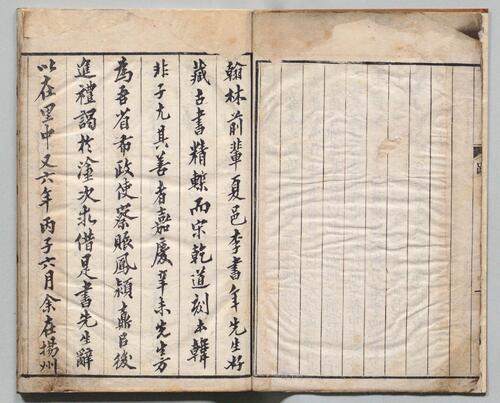 翰林前輩夏邑李書年先生好
藏古書精槧而宋乾道刻本韓
非子尤其善者嘉慶辛未先生方
為吾省布政使察賑鳳潁鼒㠯後
進禮謁於塗次求借是書先生辭
以在里中又六年丙子六月余在揚州